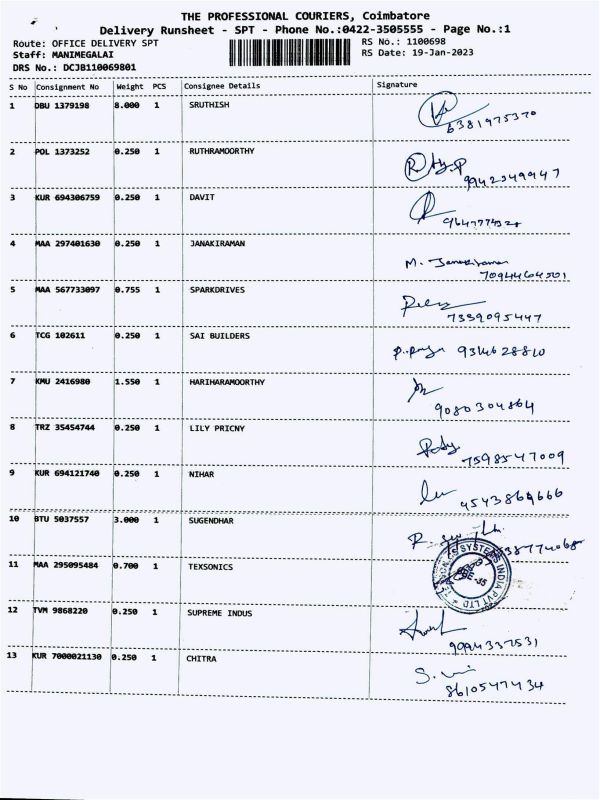 THE PROFESSIONAL COURIERS, Coimbatore
Delivery Runsheet - SPT - Phone No.:0422-3505555 - Page No.:1
Route: OFFICE DELIVERY SPT RS No.: 1100698
Staff: MANIMEGALAI RS Date: 19-Jan-2023
DRS No.: DCJB110069801
S No Consignment No Weight PCS Consignee Details Signature
1 DBU 1379198 8.000 1 SRUTHISH
6381975370
2 POL 1373252 0.250 1 RUTHRAMOORTHY
9942349947
3 KUR 694306759 0.250 1 DAVIT
4 MAA 297401630 0.250 1 JANAKIRAMAN
M. Janakiraman
7094464501
5 MAA 567733097 0.755 1 SPARKDRIVES
7339095447
6 TCG 102611 0.250 1 SAI BUILDERS
9314628810
7 KMU 2416980 1.550 1 HARIHARAMOORTHY
9080304864
8 TRZ 35454744 0.250 1 LILY PRICNY
7598547009
9 KUR 694121740 0.250 1 NIHAR
4543869666
10 BTU 5037557 3.000 1 SUGENDHAR
11 MAA 295095484 0.700 1 TEXSONICS
SYSTEMS INDIA PVT LTD
12 TVM 9868220 0.250 1 SUPREME INDUS
9994337531
13 KUR 7000021130 0.250 1 CHITRA
8610547434